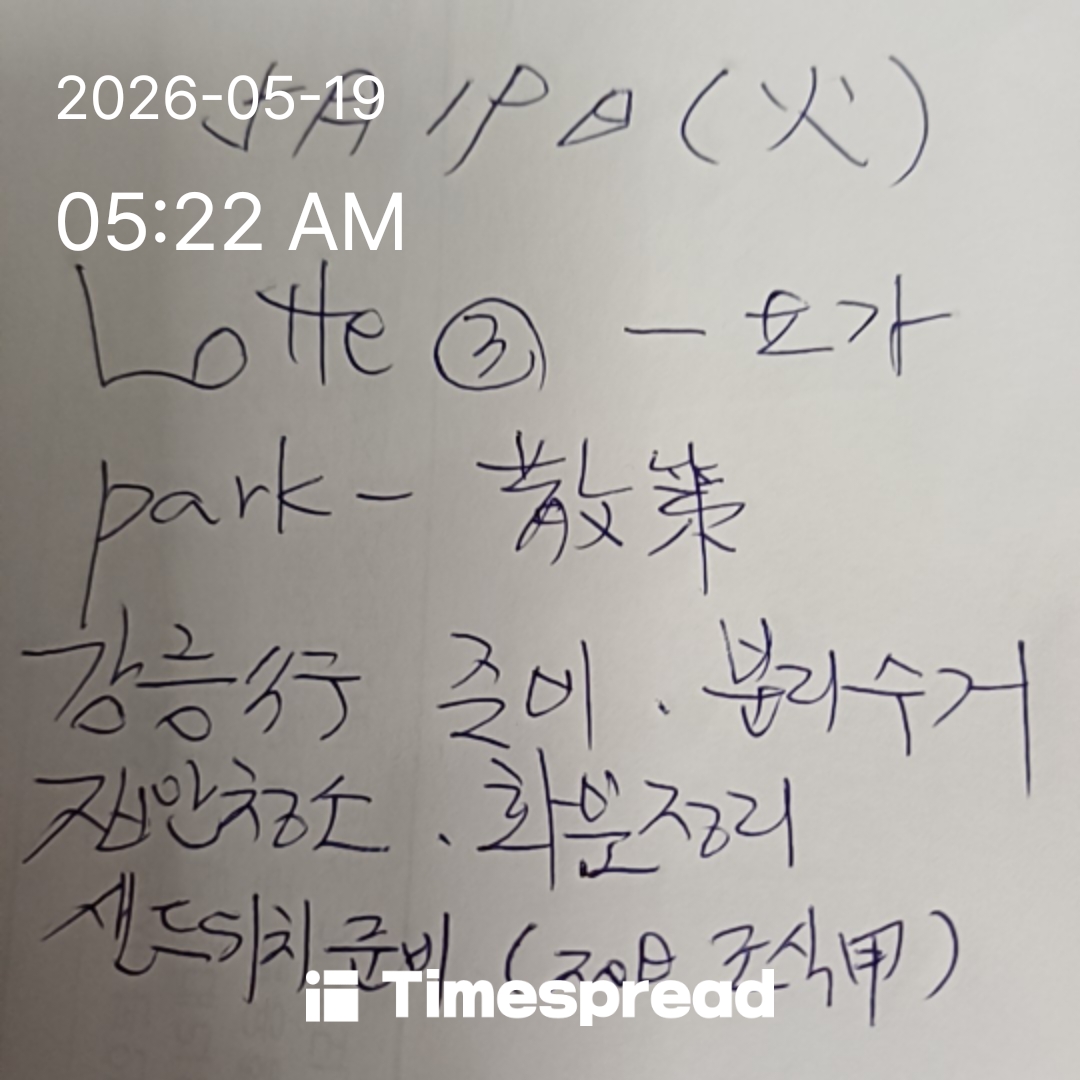 2026-05-19
5月 19日 (火)
05:22 AM
Lotte ③ - 요가
park - 散策
강릉行 준비 . 분리수거
집안청소 . 화분정리
샌드위치준비 ( 조식用 )
Timespread